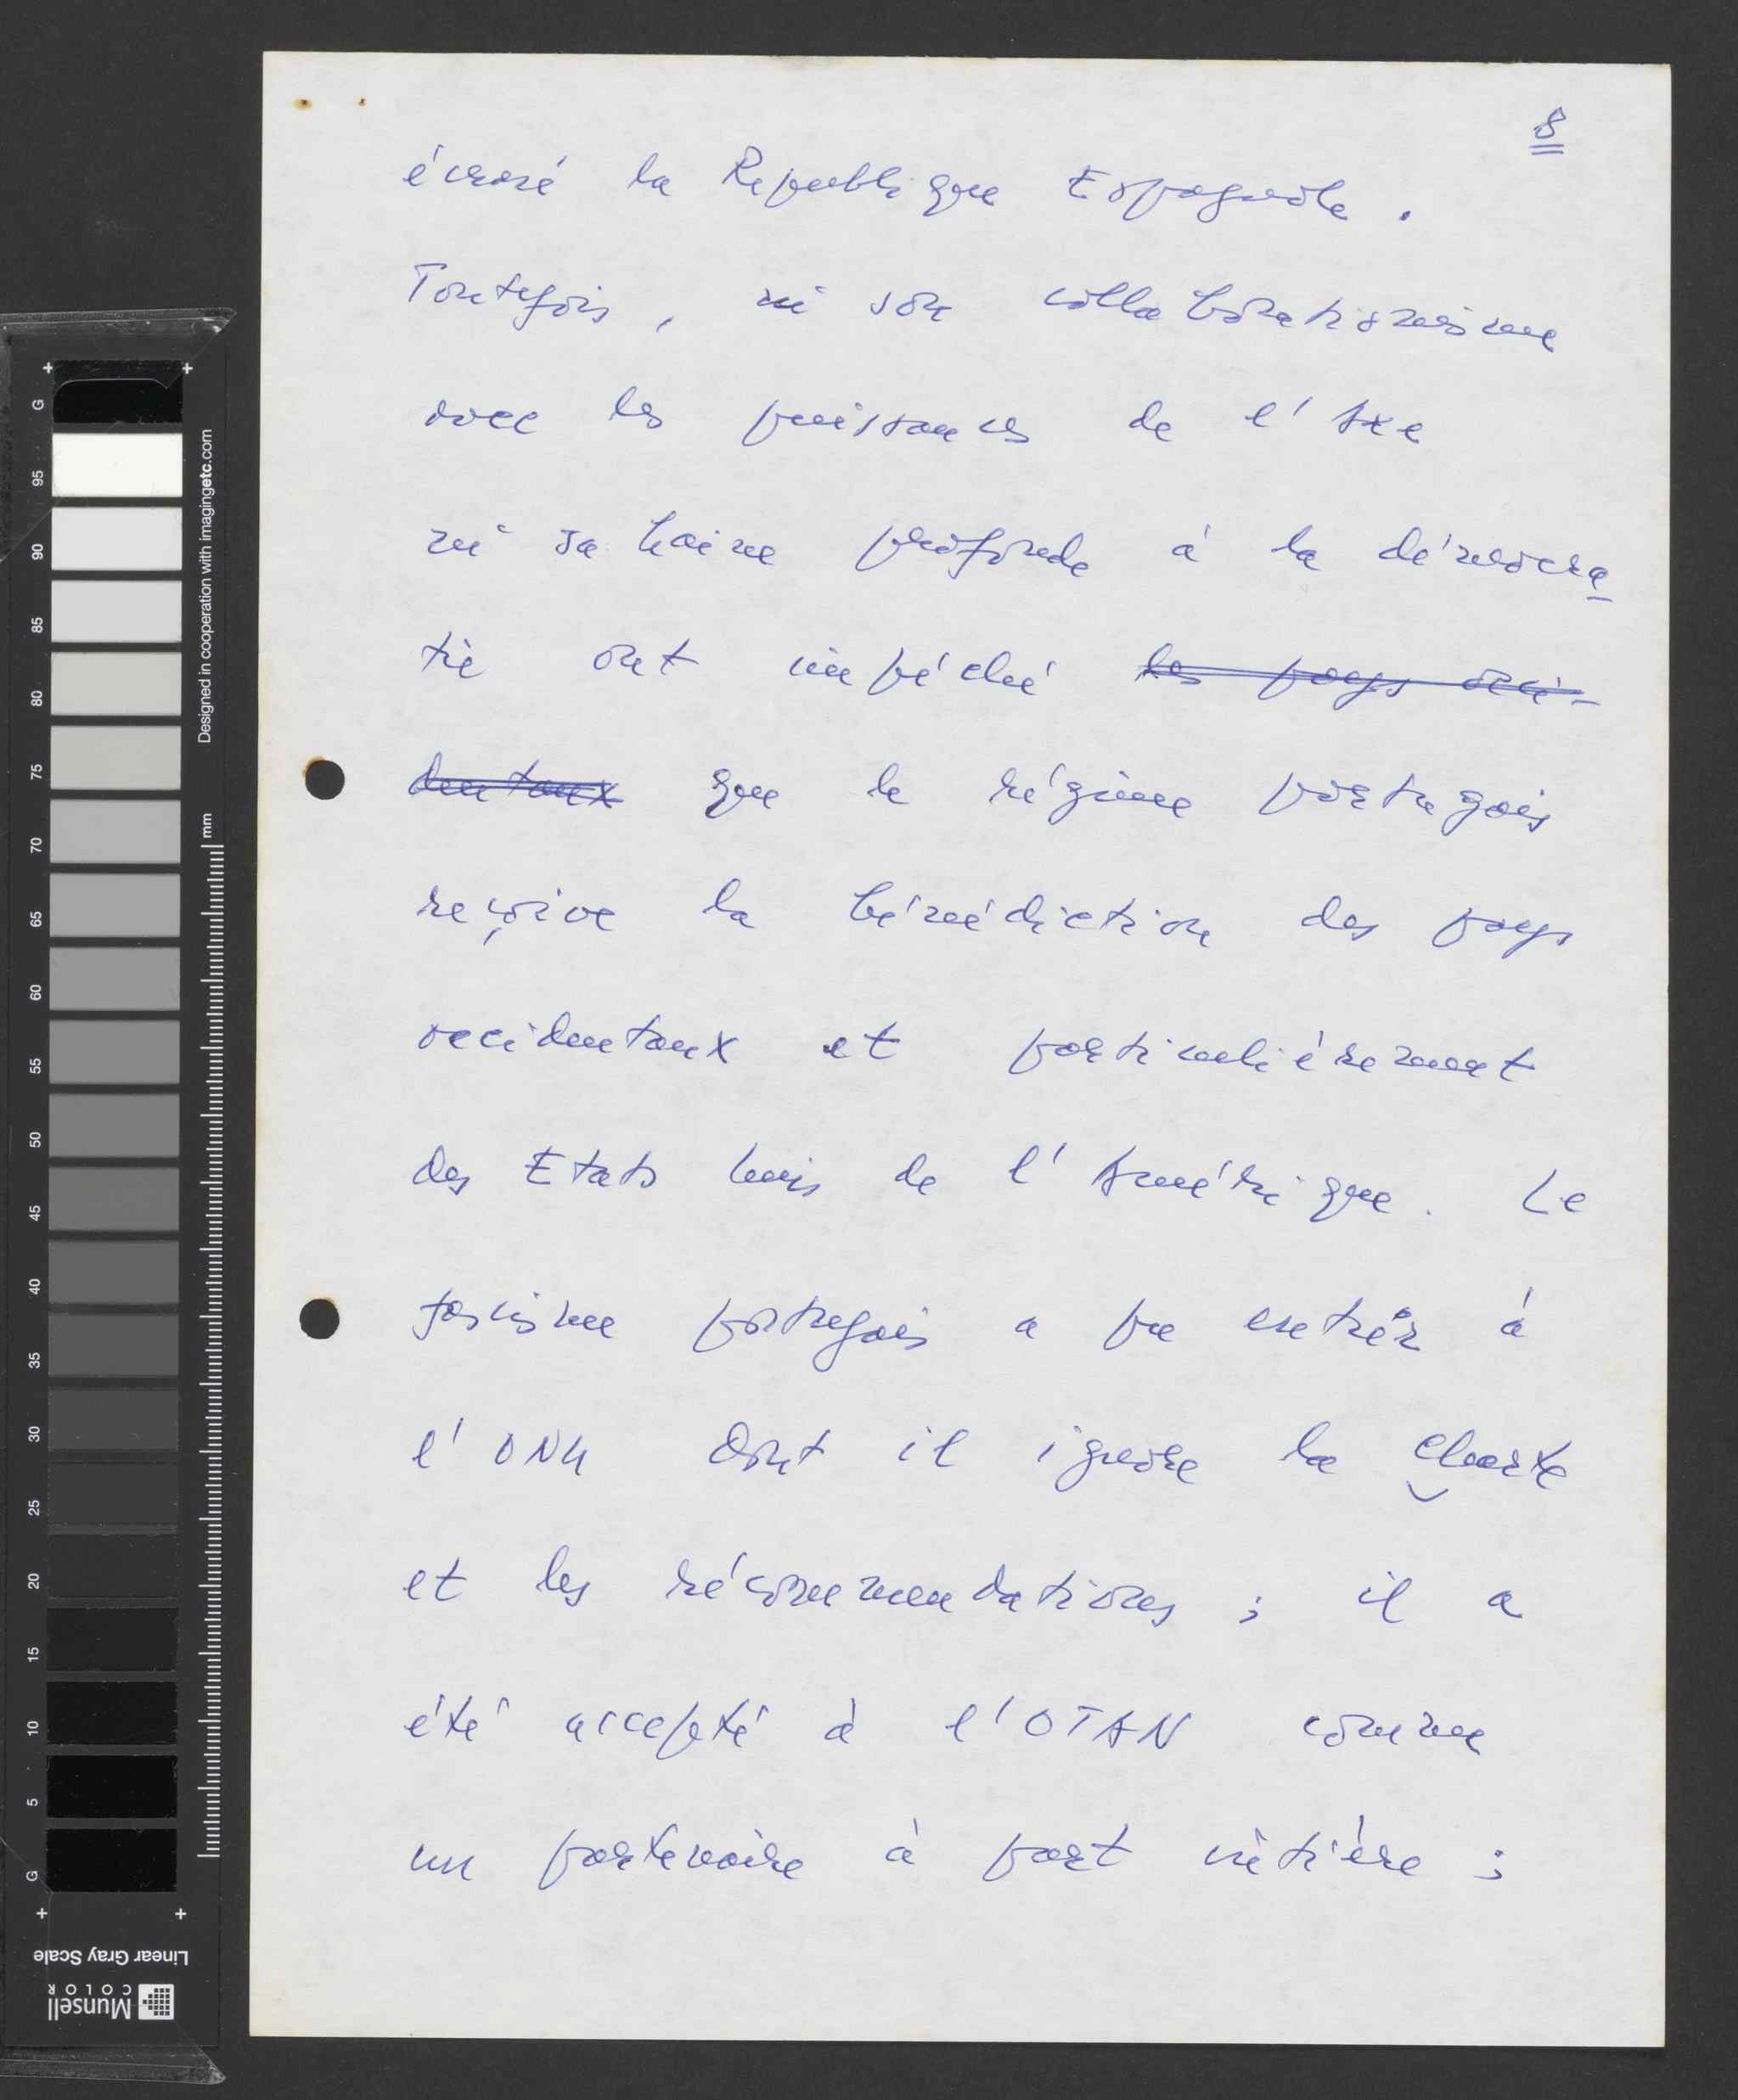 8
écrasé la Republique Espagnole.
Toutefois, ni son collaborationisme
avec les puissances de l'Axe
ni sa haine profonde à la démocra
tie ont impéché les pays occi-
dentaux que le régime portugais
reçoive la bénédiction des pays
occidentaux et particulièrement
des Etats Unis de l'Amérique. Le
fascisme portugais a pu entrér à
l'ONU dont il ignore la Charte
et les récommendations ; il a
été accepté à l'OTAN comme
un partenaire à part intière ;
G 95 90 85 80 75 70 65 60 55 50 45 40 35 30 25 20 15 10 5 G
Designed in cooperation with imagingetc.com
mm
Linear Gray Scale
Munsell
COLOR